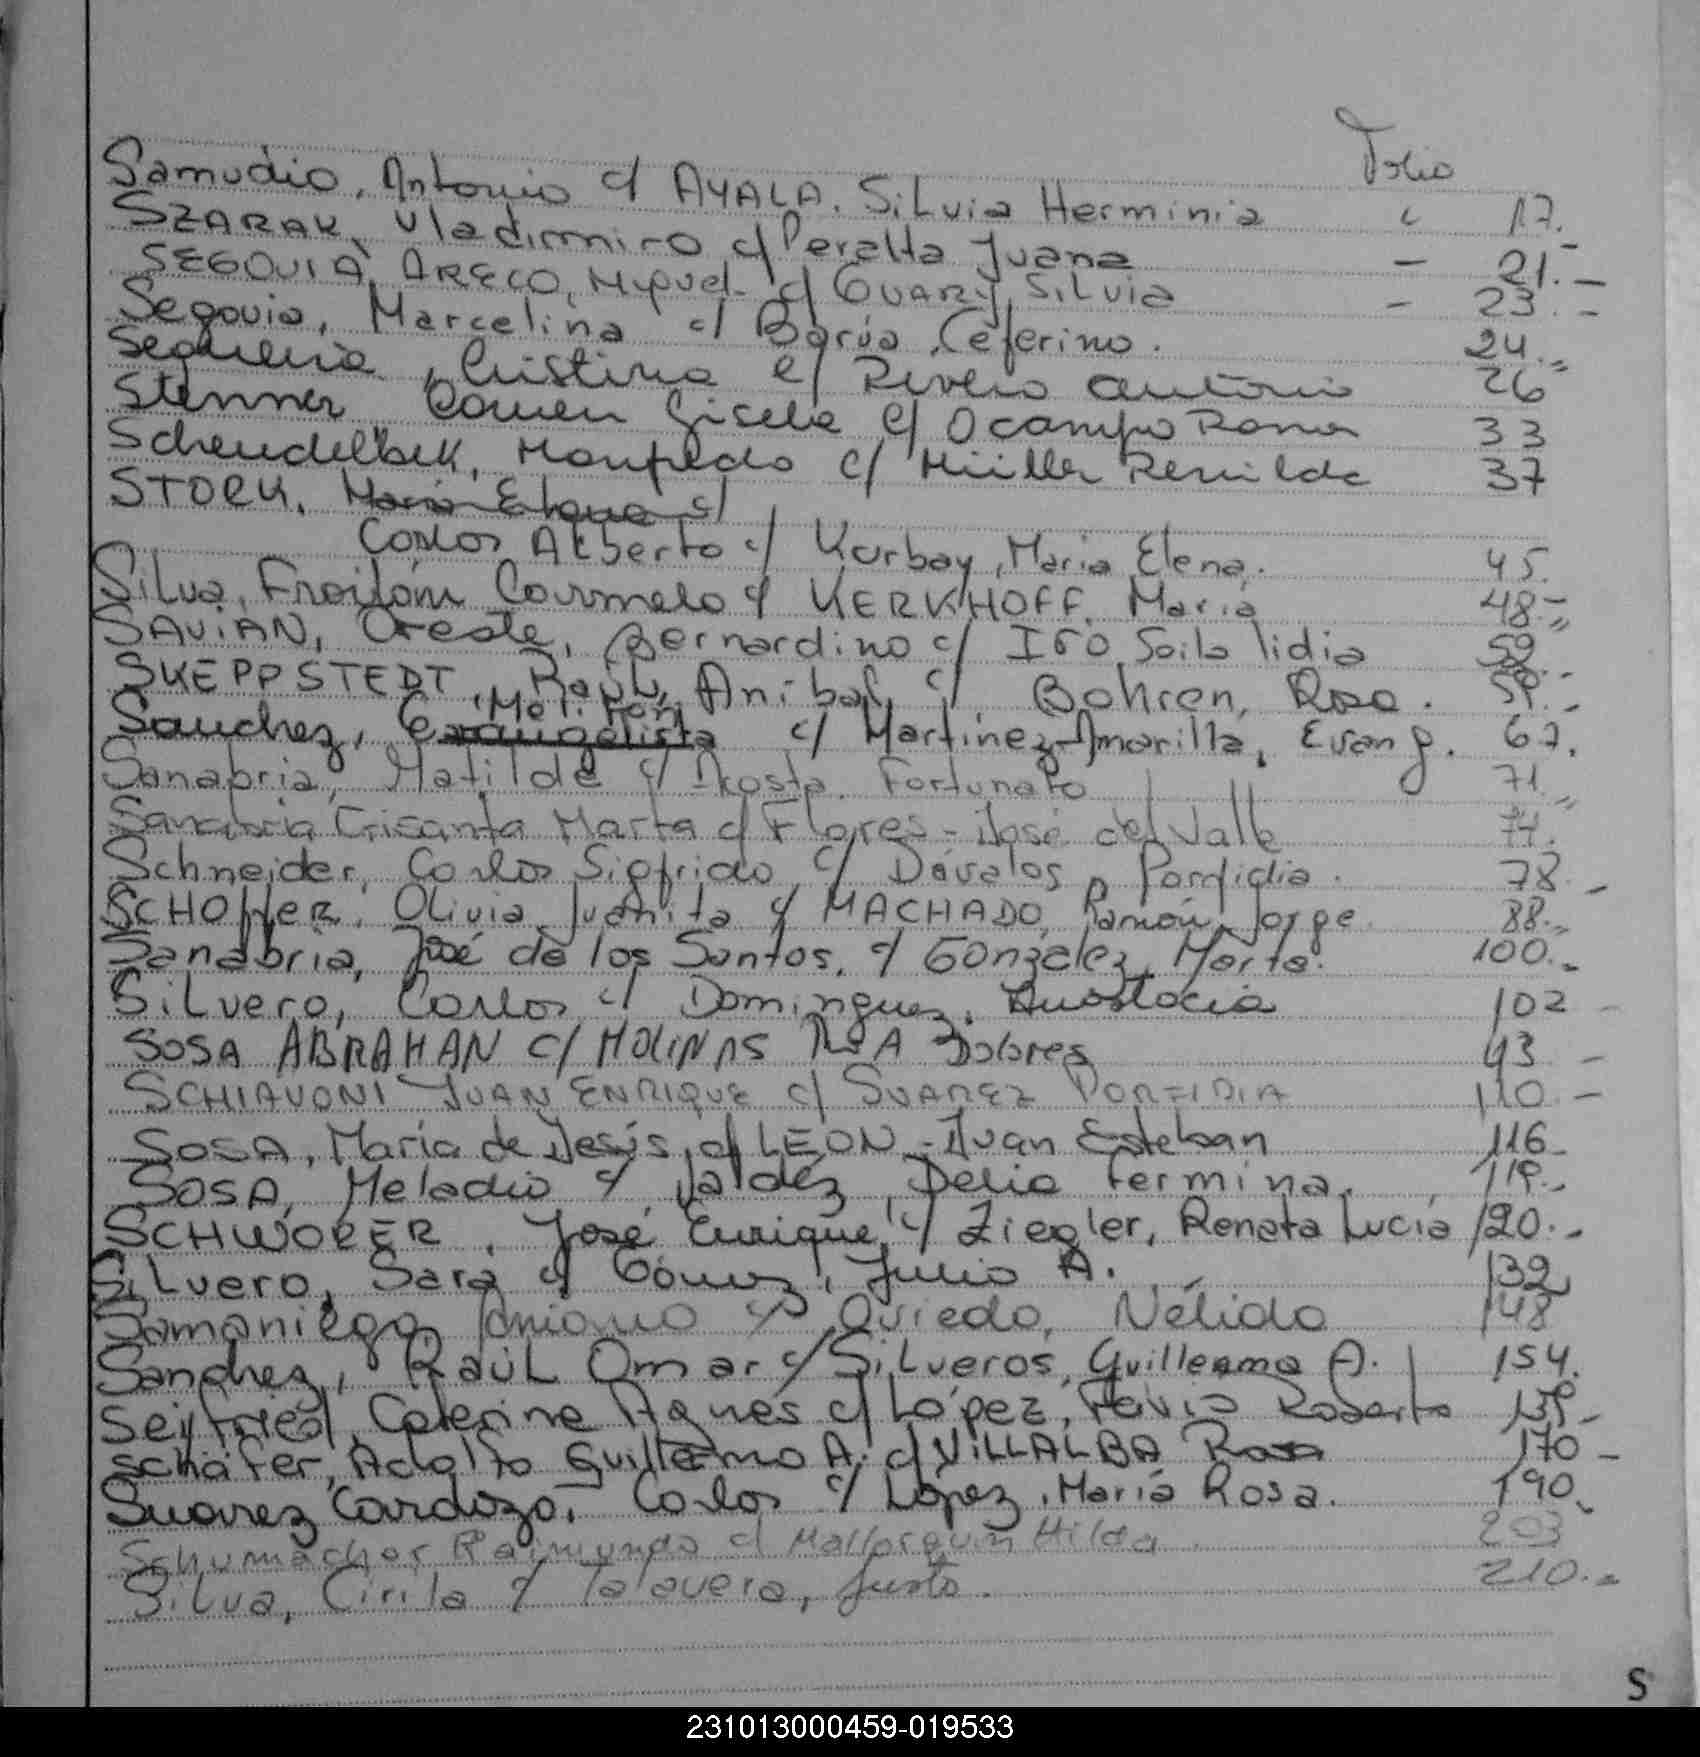 Folio
Samudio, Antonio c/ AYALA. Silvia Herminia " 17.
SZARAK, Vladimiro c/ Peralta Juana - 21.-
SEGOVIA ARECO, Miguel- c/ GUARY, Silvia - 23.-
Segovia, Marcelina c/ Barúa, Ceferino. 24.,
Sequeria, Cristina c/ Rivero Antonio 26
Stenner Carmen Gisela c/ Ocampo Ramon 33
Schendelbek, Manfredo c/ Müller Renilda 37
STORK, Maria Elena c/
Carlos Alberto c/ Kurbay, Maria Elena. 45.
Silva, Froilán Carmelo c/ KERKHOFF, Maria 48.-
SAVIAN, Oreste, Bernardino c/ IRO, Soila lidia 59
SKEPPSTEDT, Raúl, Anibal c/ Bohren, Rosa.
Melitón
Sanchez, Evangelista c/ Martinez Amarilla, Evang. 67.
Sanabria, Matilde c/ Acosta. Fortunato 71.
Sanabria Crisanta Marta c/ Flores - José del Valle 77.
Schneider, Carlos Sigfrido, c/ Dávalos, Porfidia. 78.-
SCHOffER, Olivia Juanita c/ MACHADO, Ramón, Jorge. 88.-
Sanabria, José de los Santos, c/ González, Marta. 100.-
Silvero, Carlos c/ Dominguez, Anastacia 102
SOSA ABRAHAN c/ MOLINAS ROSA Dolores 93 -
SCHIAVONI JUAN ENRIQUE c/ SUAREZ PORFIDIA 110.-
SOSA, María de Jesús, c/ LEON - Juan Esteban 116
SOSA, Meladio c/ Valdéz, Delia Fermina. 119.,
SCHWORER, José Enrique, c/ Ziegler, Renata Lucía 120.-
Silvero, Sara c/ Gómez, Julio A. 132
Samaniego, Antonio c/ Oviedo, Nélida 148
Sanchez, Raúl Omar c/ Silveros, Guillerma A. 154.
Seifried, Caterine Agnes c/ López, Flavio Roberto
Schäfer, Adolfo Guillermo A. c/ VILLALBA Rosa 170 -
Suarez Cardozo, Carlos c/ López, María Rosa. 190.
Schumacher Raimundo c/ Mallorquin Hilda 203
Silva, Cirila c/ Talavera, Justo. 210.-
S
231013000459-019533